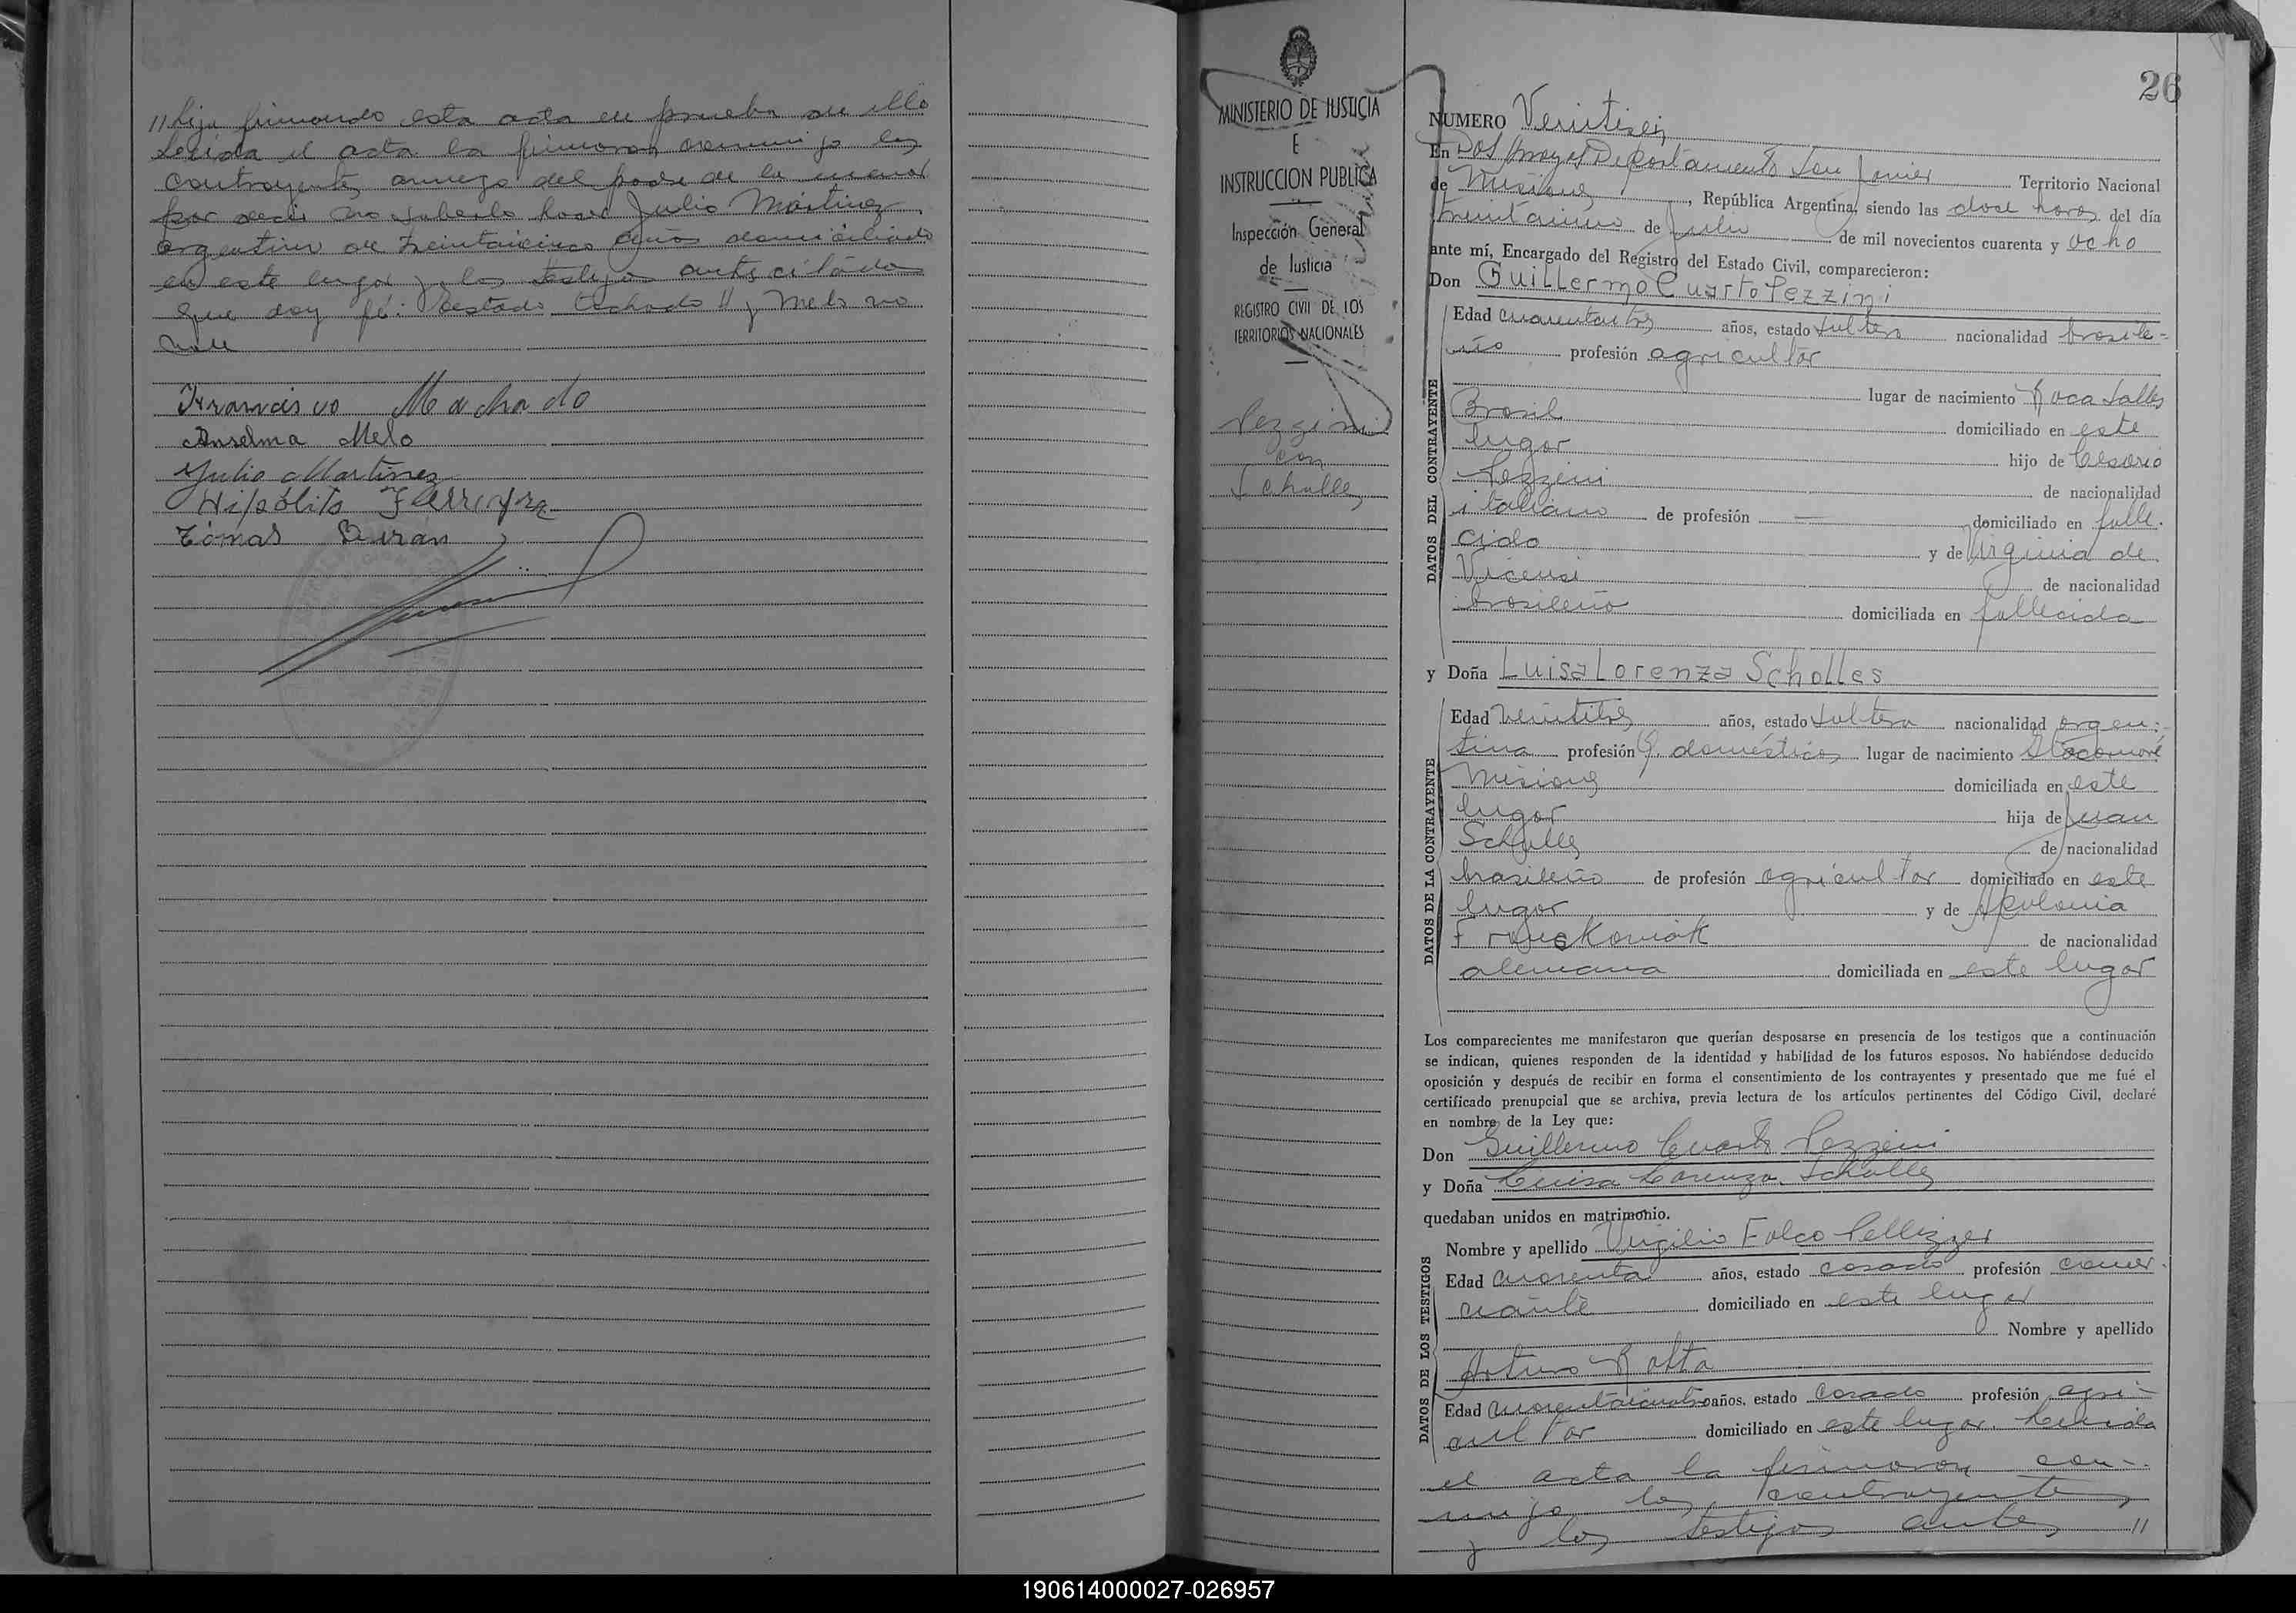 // hija firmando esta acta en prueba de ello
Leida el acta la firmaron conmigo los
contrayentes, a ruego del padre de la menor
por decir no saberlo hace Julio Martinez
argentino de treintaicinco años domiciliado
en este lugar y los testigos antes citados
que doy fé: testado tachado // y Melo no
vale
Francisco Machado
Anselma Melo
Julio Martinez
Hipólito Ferreyra
Tómas Duran
MINISTERIO DE JUSTICIA
E
INSTRUCCION PUBLICA
Inspección General
de Justicia
REGISTRO CIVIL DE LOS
TERRITORIOS NACIONALES
Pezzini
con
Scholles
26
NUMERO Veintiseis
En Dos Arroyos Departamento San Javier Territorio Nacional
de Misiones, República Argentina, siendo las doce horas del día
treintaiuno de Julio de mil novecientos cuarenta y ocho
ante mí, Encargado del Registro del Estado Civil, comparecieron:
Don Guillermo Cuarto Pezzini
DATOS DEL CONTRAYENTE
Edad cuarentaitres años, estado soltero nacionalidad brasile-
ño profesión agricultor
lugar de nacimiento Roca Salles
Brasil domiciliado en este
lugar hijo de Cesario
Pezzini de nacionalidad
italiano de profesión — domiciliado en falle-
cido y de Virginia de
Vicensi de nacionalidad
brasileña domiciliada en fallecida
y Doña Luisa Lorenza Scholles
DATOS DE LA CONTRAYENTE
Edad veintitres años, estado soltera nacionalidad argen-
tina profesión Q. domésticos lugar de nacimiento Itacaruaré
Misiones domiciliada en este
lugar hija de Juan
Scholles de nacionalidad
brasileño de profesión agricultor domiciliado en este
lugar y de Apolonia
de nacionalidad
alemana domiciliada en este lugar
Los comparecientes me manifestaron que querían desposarse en presencia de los testigos que a continuación
se indican, quienes responden de la identidad y habilidad de los futuros esposos. No habiéndose deducido
oposición y después de recibir en forma el consentimiento de los contrayentes y presentado que me fué el
certificado prenupcial que se archiva, previa lectura de los artículos pertinentes del Código Civil, declaré
en nombre de la Ley que:
Don Guillermo Cuarto Pezzini
y Doña Luisa Lorenza Scholles
quedaban unidos en matrimonio.
DATOS DE LOS TESTIGOS
Nombre y apellido Virgilio Falco Pellizzer
Edad cuarenta años, estado casado profesión comer-
ciante domiciliado en este lugar
Nombre y apellido
Arturo Rotta
Edad cuarentaicuatro años, estado casado profesión agri-
cultor domiciliado en este lugar. Leida
el acta la firmaron con-
migo los contrayentes
y los testigos antes //
190614000027-026957